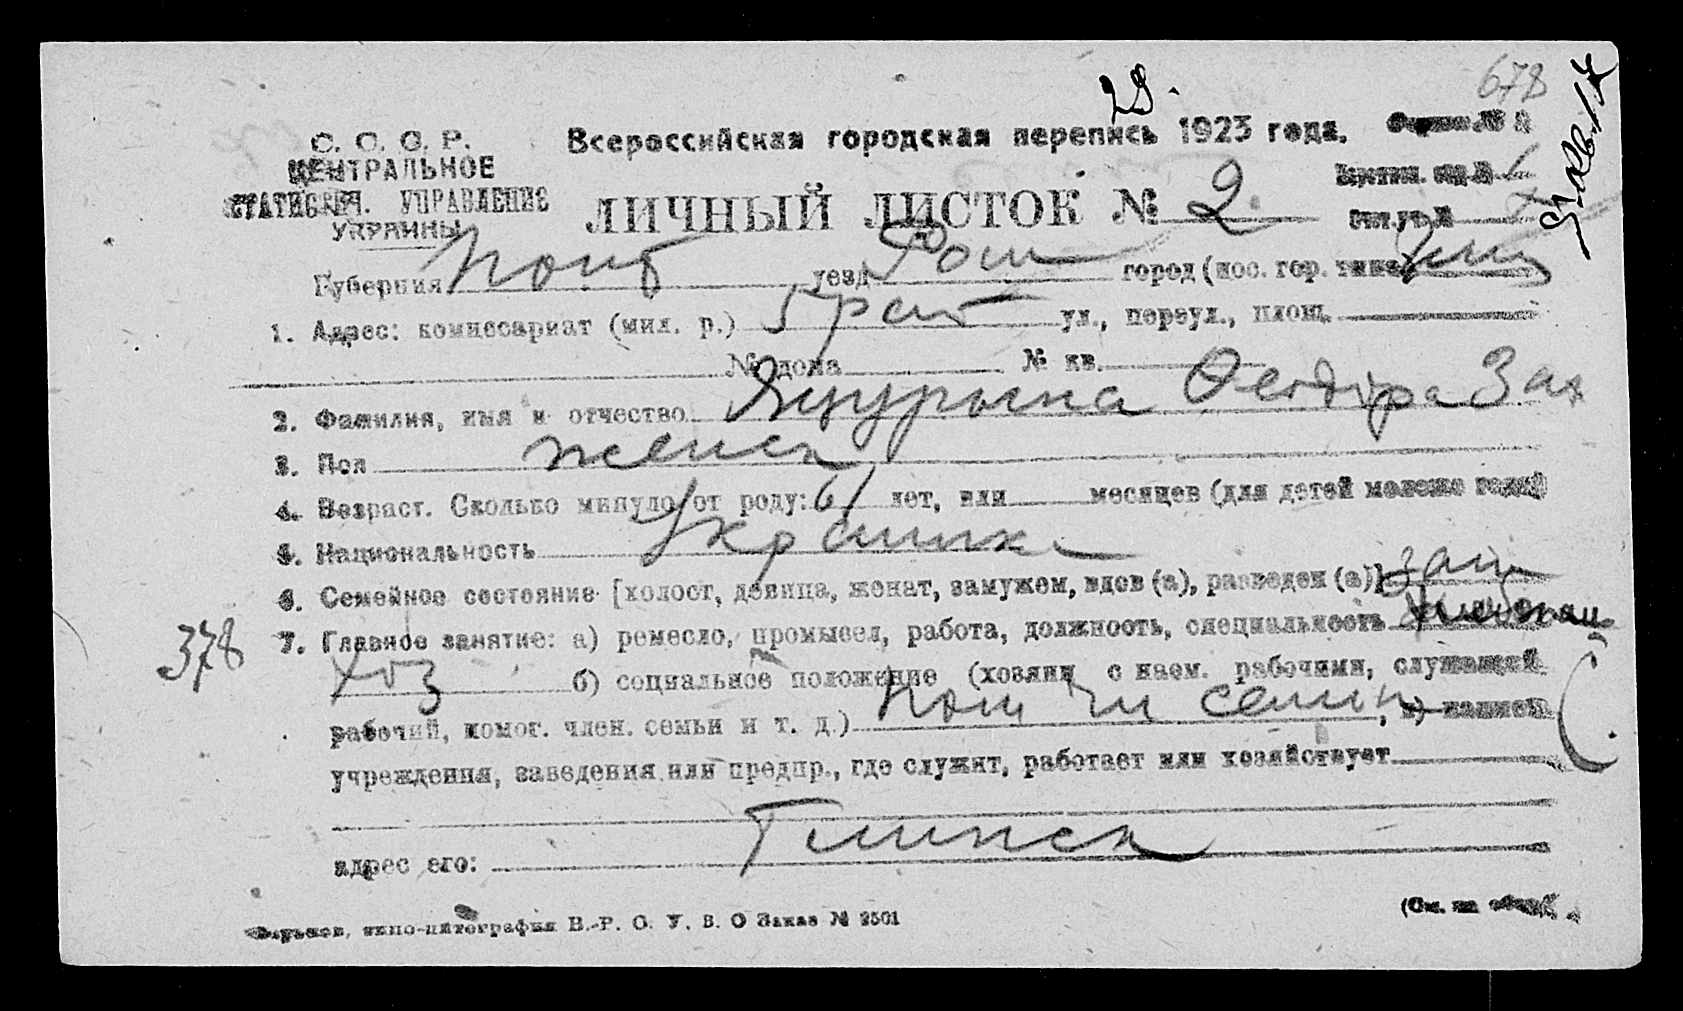 678
29.
С. С. С. Р. Всероссийская городская перепись 1923 года.
ЦЕНТРАЛЬНОЕ
СТАТИСТИЧ. УПРАВЛЕНИЕ
УКРАИНЫ
ЛИЧНЫЙ ЛИСТОК № 2.
Губерния Полт уезд Ром город (пос. гор. типа)
1. Адрес: комиссариат (мил. р.) 5 рай ул., переул., площ.
№ дома № кв.
2. Фамилия, имя и отчество Ящурына Федора Зах
3. Пол женск
4. Возраст. Сколько минуло от роду: 61 лет, или месяцев (для детей моложе года)
5. Национальность Украинка
6. Семейное состояние [холост, девица, женат, замужем, вдов (а), разведен (а)] зам
378
7. Главное занятие: а) ремесло, промысел, работа, должность, специальность хлебопаш
хоз б) социальное положение (хозяин с наем. рабочими, служащий
рабочий, помог. член. семьи и т. д.) пом чл семьи, в) назв
учреждения, заведения или предпр., где служит, работает или хозяйствует
адрес его: Глинск
Харьков, типо-литография В.-Р. С. У. В. О Заказ № 2501
(См. на